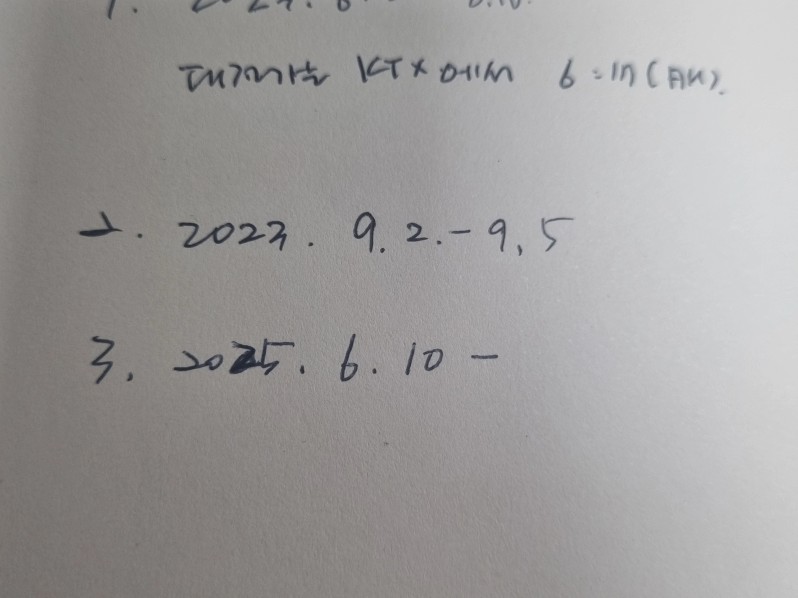 1.
대전가는 KTX에서 6:17 (AM).
2. 2023. 9. 2. - 9. 5
3. 2025. 6. 10 -